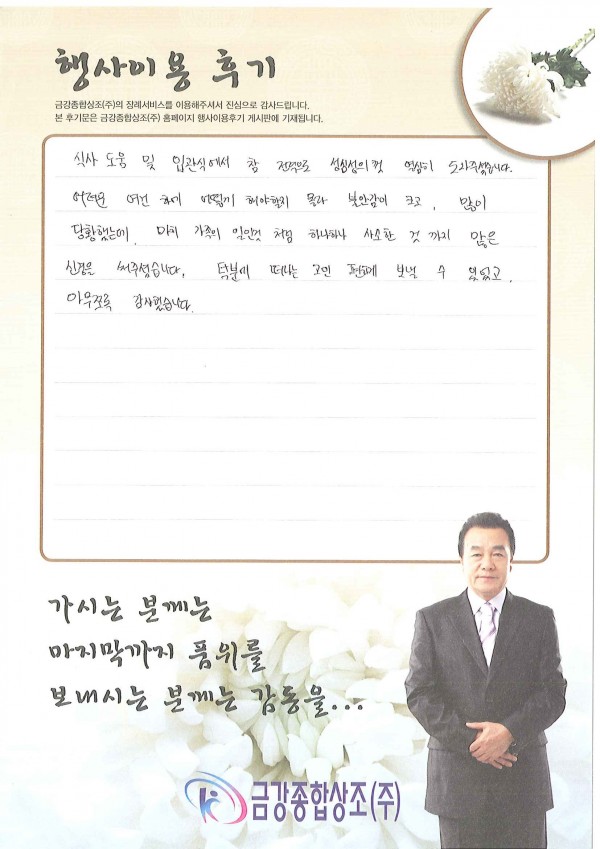 행사이용 후기
금강종합상조(주)의 장례서비스를 이용해주셔서 진심으로 감사드립니다.
본 후기문은 금강종합상조(주) 홈페이지 행사이용후기 게시판에 기재됩니다.
식사 도움 및 입관식에서 참 전적으로 성심성의껏 열심히 도와주셨습니다.
어려운 여건 하에 어떻게 해야할지 몰라 불안감이 크고, 많이
당황했는데, 마치 가족의 일인것 처럼 하나하나 사소한 것 까지 많은
신경을 써주셨습니다. 덕분에 떠나는 고인 편하게 보낼 수 있었고,
아무쪼록 감사했습니다.
가시는 분께는
마지막까지 품위를
보내시는 분께는 감동을...
금강종합상조(주)